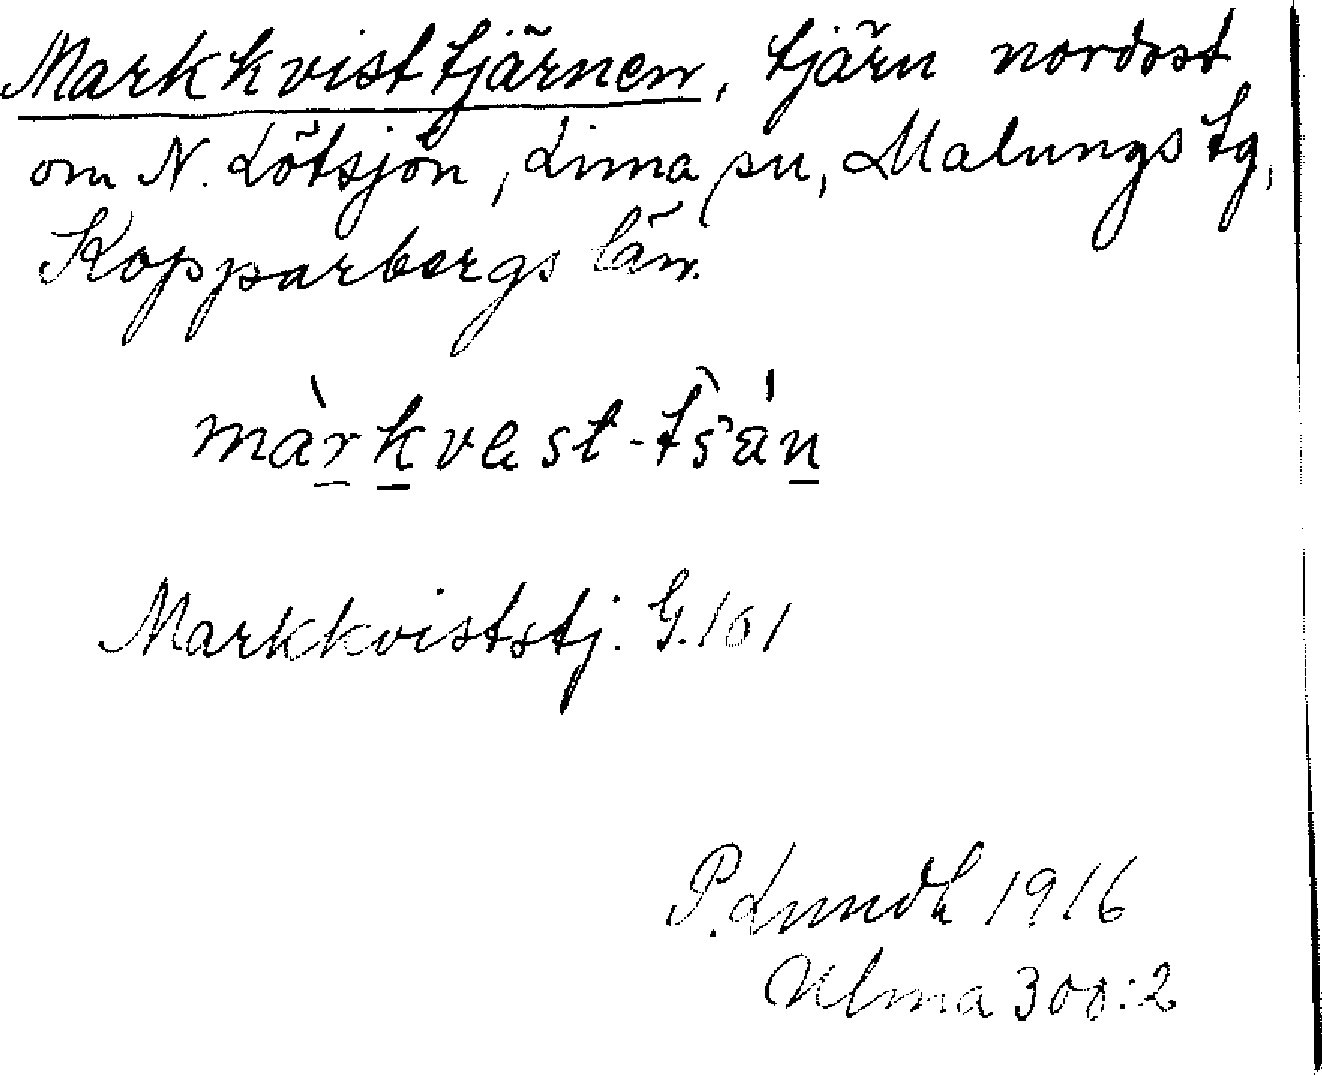 Markkvisttjärnen, tjärn nordost
om N. Lötsjön, Lima sn, Malungs tg,
Kopparbergs län.
màrkvest-tšän
Markkviststj. G. 101
P. Lundh 1916
Ulma 300:2